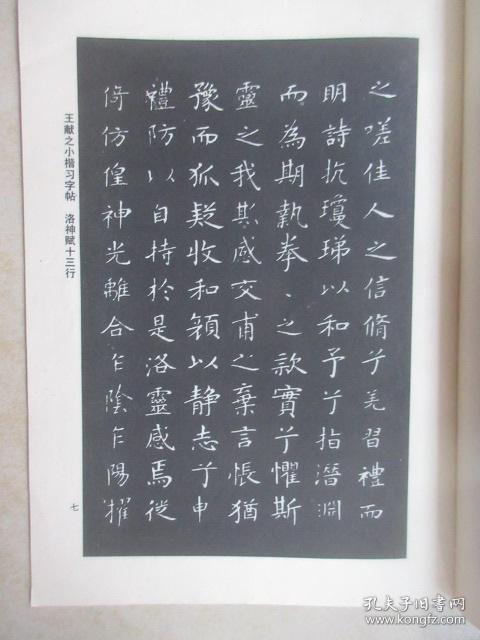 之嗟佳人之信脩兮羌習禮而
明詩抗瓊珶以和予兮指潛淵
而為期執拳、之款實兮懼斯
靈之我欺感交甫之棄言悵猶
豫而狐疑收和顏以静志兮申
禮防以自持於是洛靈感焉徙
倚仿偟神光離合乍陰乍陽擢
王献之小楷习字帖　洛神赋十三行
七
孔夫子旧书网
kongfz.com